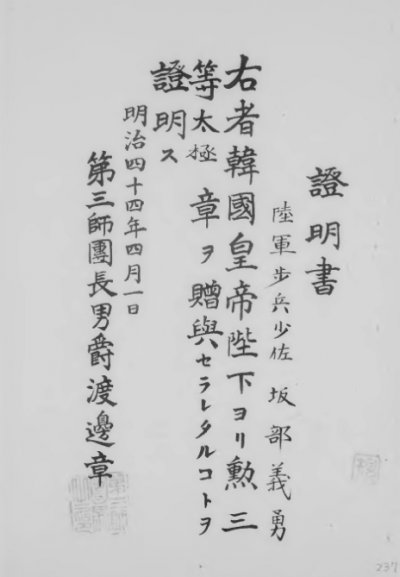 證明書
陸軍步兵少佐 坂部義勇
右者韓國皇帝陛下ヨリ勲三
等太極章ヲ贈與セラレタルコトヲ
證明ス
明治四十四年四月一日
第三師團長男爵渡邊章
237